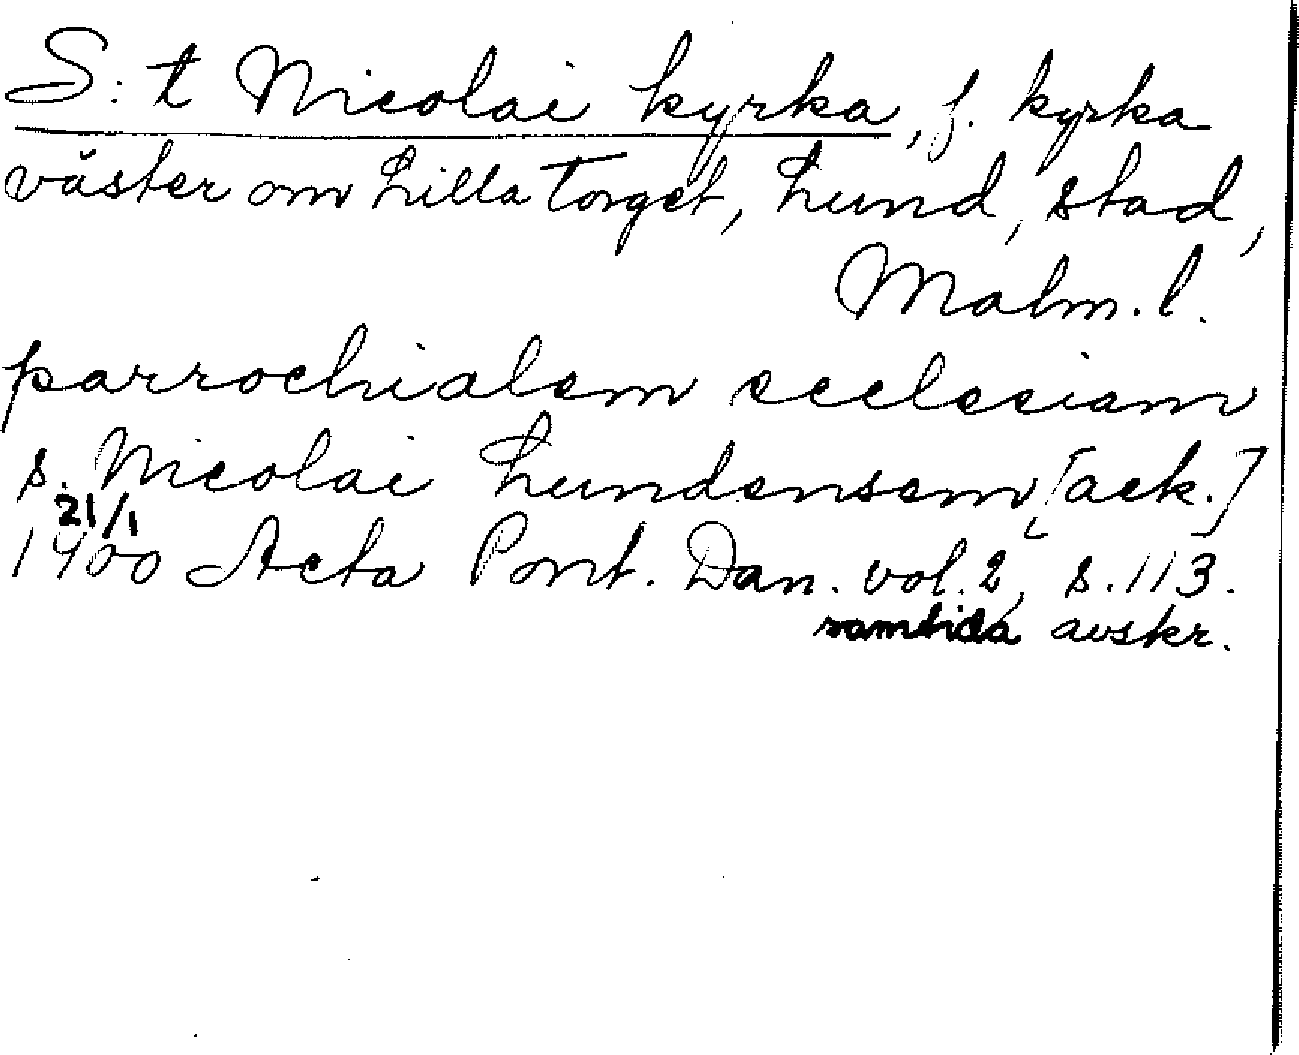 S:t Nicolai kyrka, f. kyrka
väster om Lilla Torget, Lund, stad,
Malm. l.
parrochialem ecclesiam
s. Nicolai Lundensem [ack.]
21/1
1400 Acta Pont. Dan. vol. 2, s. 113.
samtida avskr.